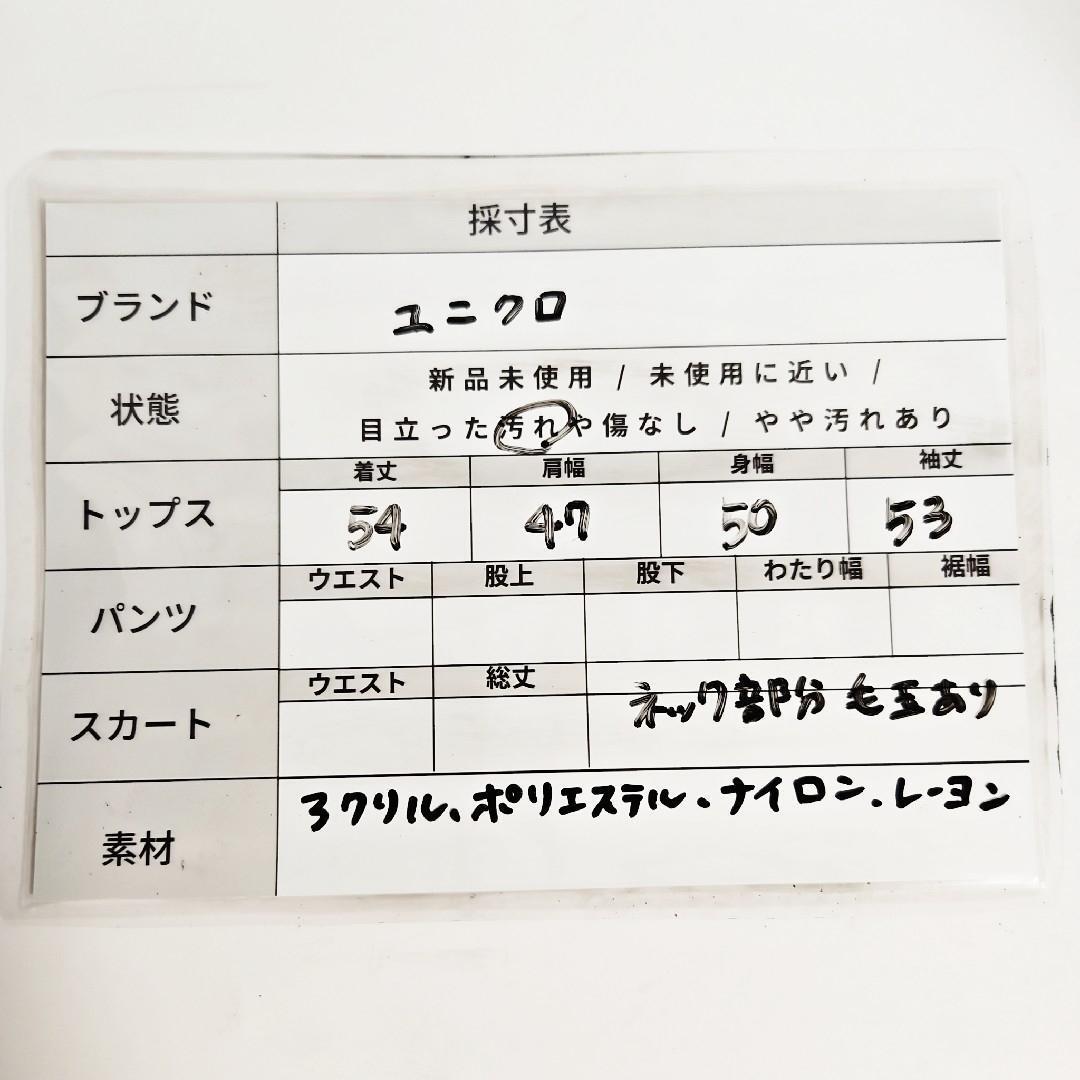 採寸表
ブランド ユニクロ
新品未使用 / 未使用に近い /
状態
目立った汚れや傷なし / やや汚れあり
着丈 肩幅 身幅 袖丈
トップス 54 47 50 53
ウエスト 股上 股下 わたり幅 裾幅
パンツ
ウエスト 総丈
スカート ネック部分毛玉あり
素材 アクリル、ポリエステル、ナイロン、レーヨン